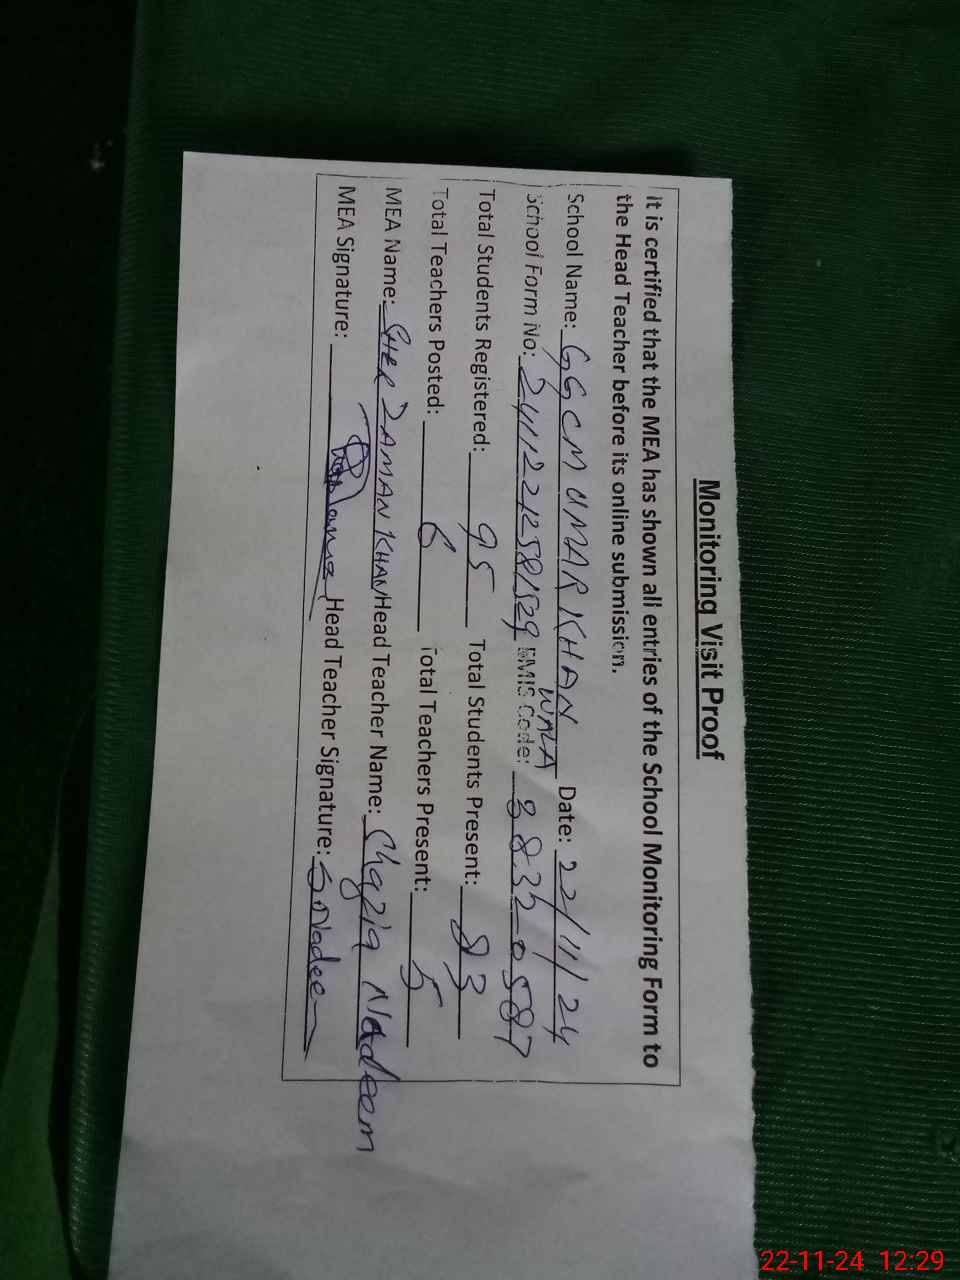 Monitoring Visit Proof
It is certified that the MEA has shown all entries of the School Monitoring Form to
the Head Teacher before its online submission.
School Name: GGCM UMAR KHAN WALA Date: 22/11/24
School Form No: EMIS Code: 38320587
Total Students Registered: 95 Total Students Present: 83
Total Teachers Posted: 6 Total Teachers Present: 5
MEA Name: SHER ZAMAN KHAN Head Teacher Name: Nadeem
MEA Signature: Head Teacher Signature:
22-11-24 12:29